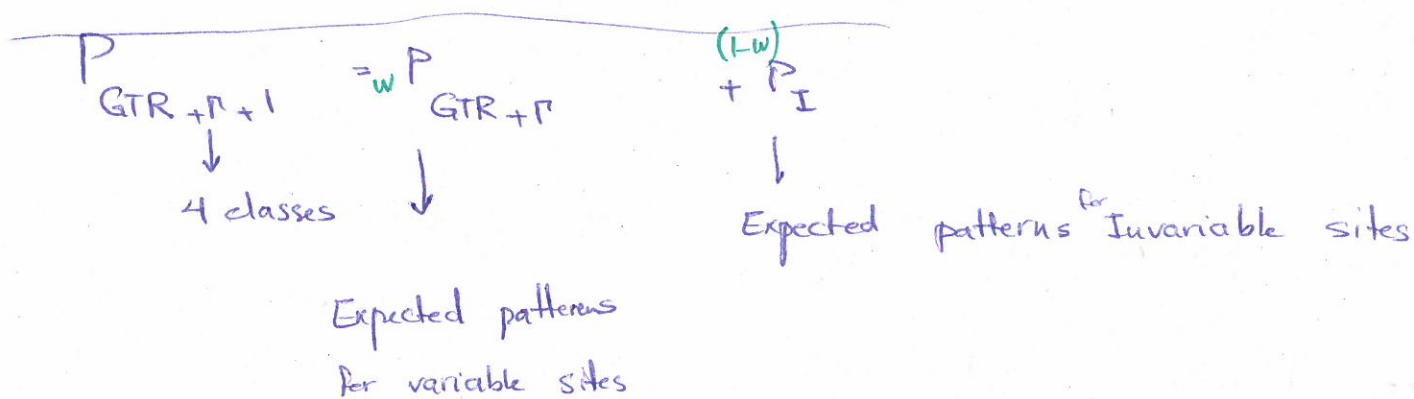 P GTR+Γ+I = w P GTR+Γ + (1-w) P I
4 classes
Expected patterns for Invariable sites
Expected patterns
for variable sites